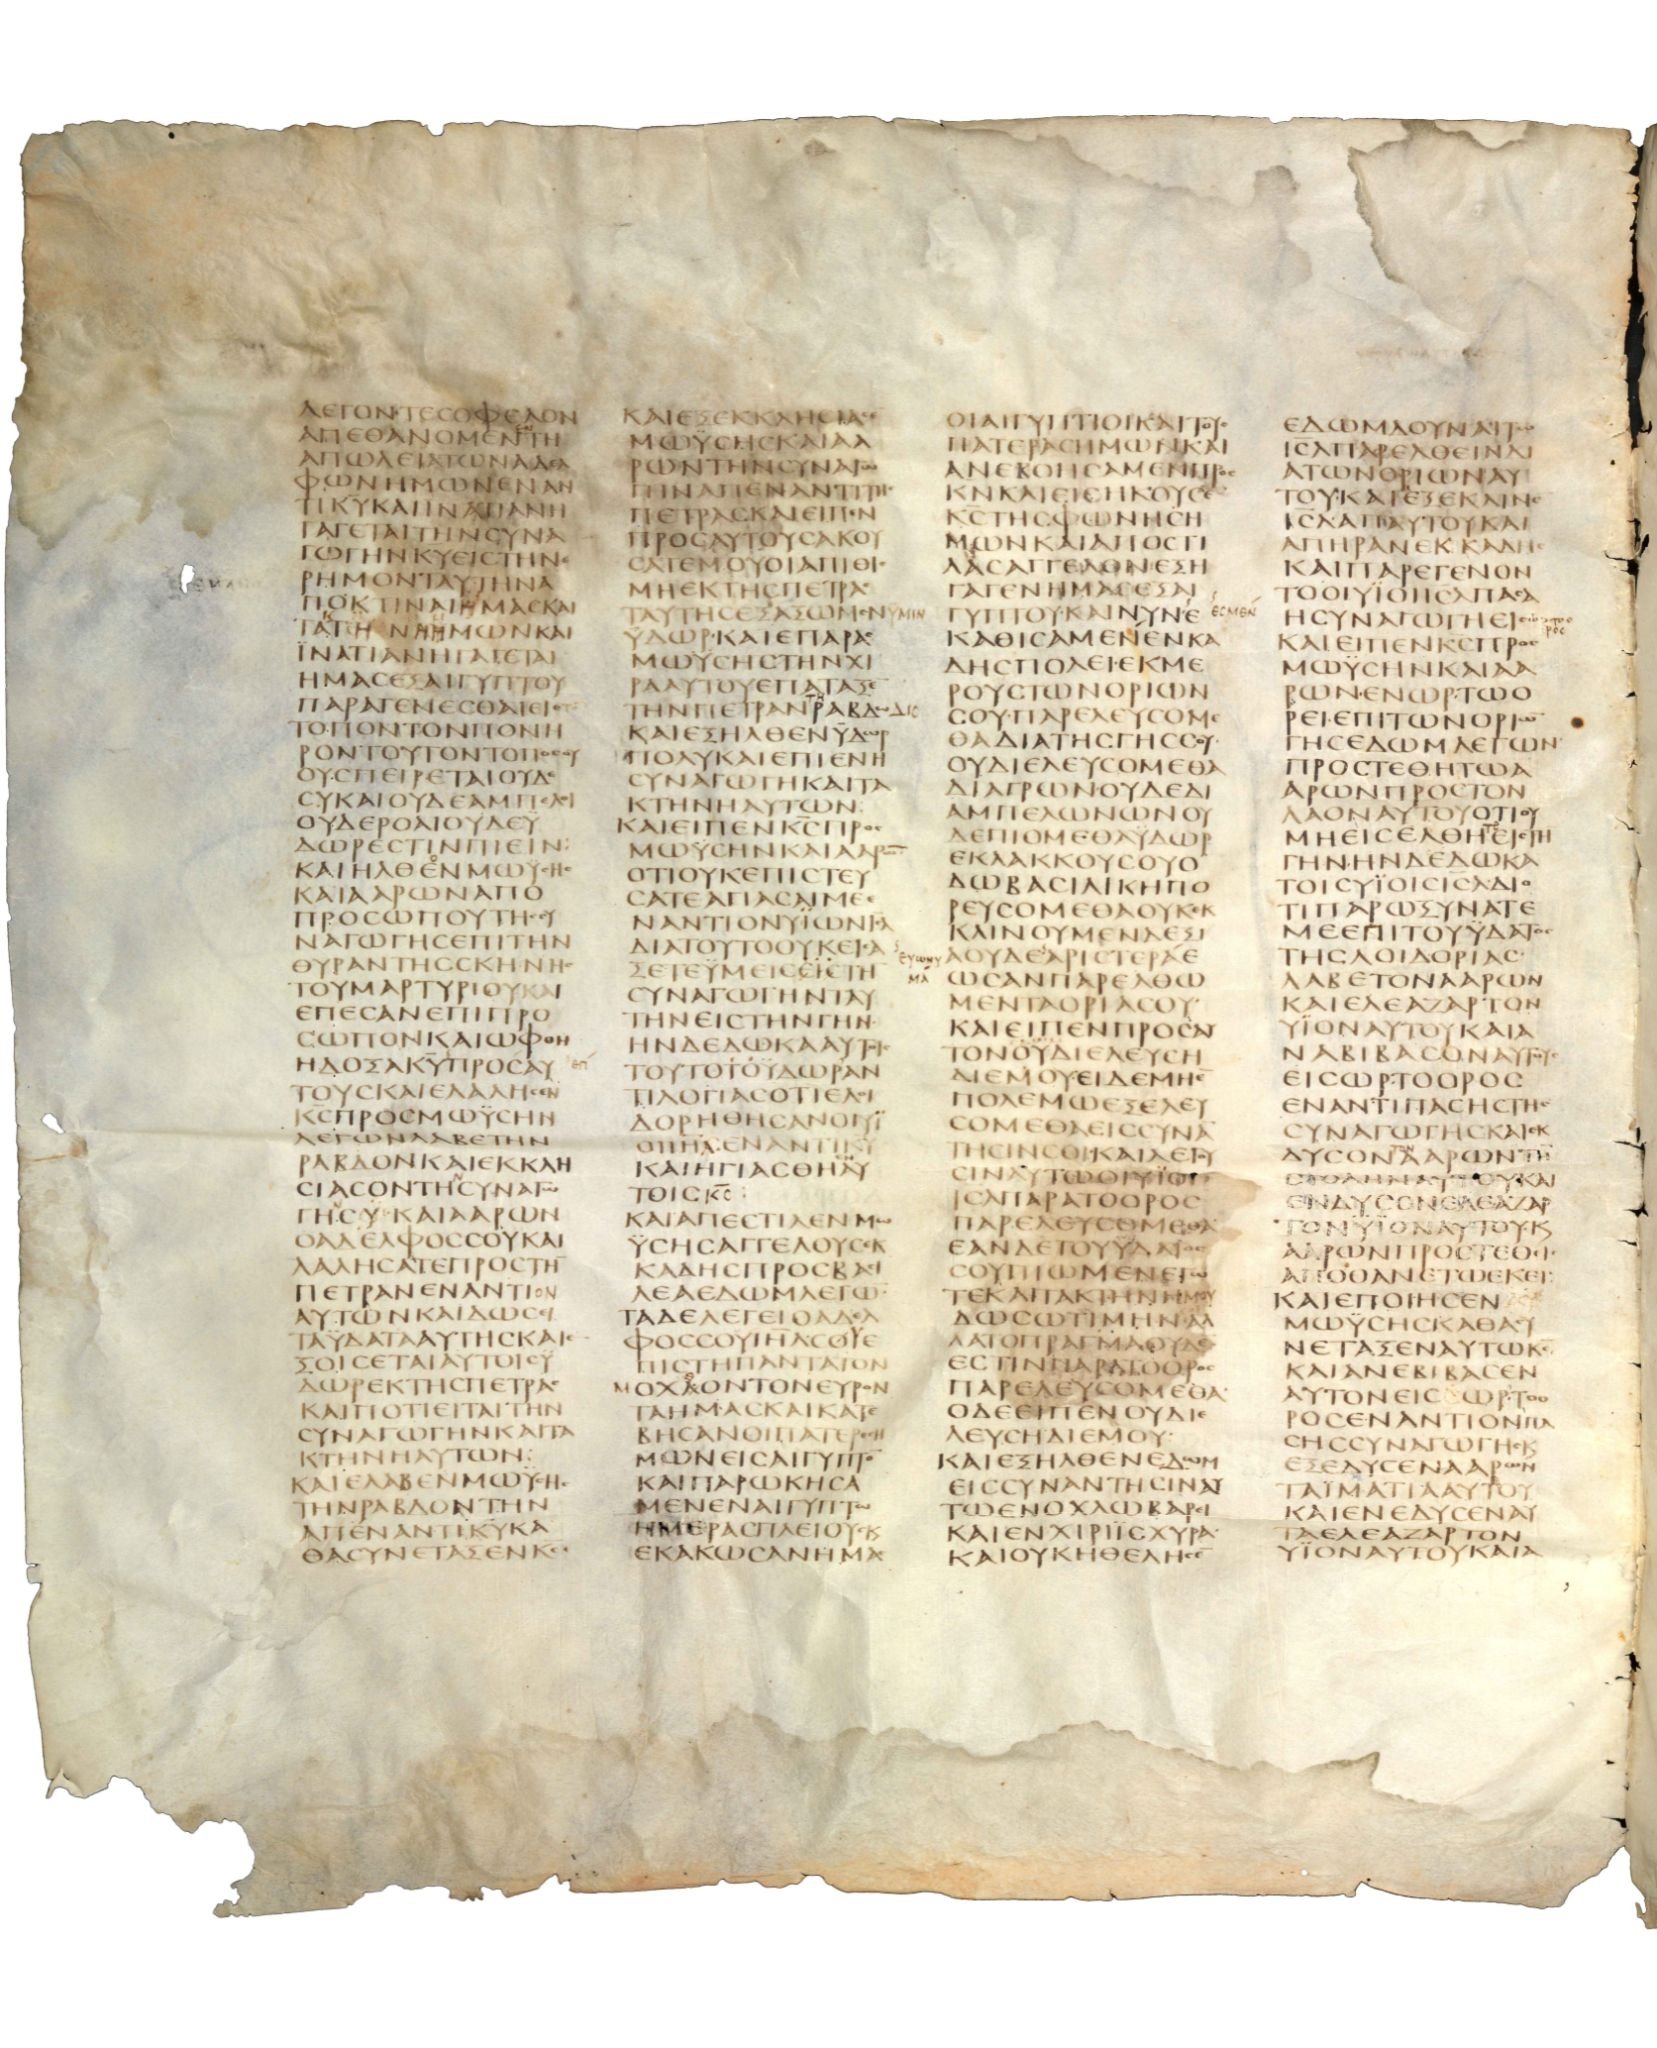 ΛΕΓΟΝΤΕCΟΦΕΛΟΝ
ΑΠΕΘΑΝΟΜΕΝΤΗ
ΑΠΩΛΕΙΑΤΩΝΑΔΕΛ
ΦΩΝΗΜΩΝΕΝΑΝ
ΤΙΚΥΚΑΙΙΝΑΤΙΑΝΗ
ΓΑΓΕΤΑΙΤΗΝCΥΝΑ
ΓΩΓΗΝΚΥΕΙCΤΗΝΕ
ΡΗΜΟΝΤΑΥΤΗΝΑ
ΠΟΚΤΙΝΑΙΗΜΑCΚΑΙ
ΤΑΚΤΗΝΗΗΜΩΝΚΑΙ
ΪΝΑΤΙΑΝΗΓΑΓΕΤΑΙ
ΗΜΑCΕΞΑΙΓΥΠΤΟΥ
ΠΑΡΑΓΕΝΕCΘΑΙΕΙC
ΤΟΠΟΝΤΟΝΠΟΝΗ
ΡΟΝΤΟΥΤΟΝΤΟΠΟCΟΥ
ΟΥCΠΕΙΡΕΤΑΙΟΥΔΕ
CΥΚΑΙΟΥΔΕΑΜΠΕΛΟΙ
ΟΥΔΕΡΟΑΙΟΥΔΕΥ
ΔΩΡΕCΤΙΝΠΙΕΙΝ:
ΚΑΙΗΛΘΕΝΜΩΥCΗC
ΚΑΙΑΑΡΩΝΑΠΟ
ΠΡΟCΩΠΟΥΤΗCCΥ
ΝΑΓΩΓΗCΕΠΙΤΗΝ
ΘΥΡΑΝΤΗCCΚΗΝΗC
ΤΟΥΜΑΡΤΥΡΙΟΥΚΑΙ
ΕΠΕCΑΝΕΠΙΠΡΟ
CΩΠΟΝΚΑΙΩΦΘΗ
ΗΔΟΞΑΚΥΠΡΟCΑΥ
ΤΟΥCΚΑΙΕΛΑΛΗCΕΝ
ΚCΠΡΟCΜΩΫCΗΝ
ΛΕΓΩΝΛΑΒΕΤΗΝ
ΡΑΒΔΟΝΚΑΙΕΚΚΛΗ
CΙΑCΟΝΤΗCΥΝΑΓΩ
ΓΗCΥΚΑΙΑΑΡΩΝ
ΟΑΔΕΛΦΟCCΟΥΚΑΙ
ΛΑΛΗCΑΤΕΠΡΟCΤΗ
ΠΕΤΡΑΝΕΝΑΝΤΙΟΝ
ΑΥΤΩΝΚΑΙΔΩCΕΙ
ΤΑΫΔΑΤΑΑΥΤΗCΚΑΙΕ
ΞΟΙCΕΤΑΙΑΥΤΟΙCΫ
ΔΩΡΕΚΤΗCΠΕΤΡΑC
ΚΑΙΠΟΤΙΕΙΤΑΙΤΗΝ
CΥΝΑΓΩΓΗΝΚΑΙΤΑ
ΚΤΗΝΗΑΥΤΩΝ:
ΚΑΙΕΛΑΒΕΝΜΩΥCΗC
ΤΗΝΡΑΒΔΟΝΤΗΝ
ΑΠΕΝΑΝΤΙΚΥΚΑ
ΘΑCΥΝΕΤΑΞΕΝΚC
ΚΑΙΕΞΕΚΚΛΗCΙΑCΕ
ΜΩΫCΗCΚΑΙΑΑ
ΡΩΝΤΗΝCΥΝΑΓΩ
ΓΗΝΑΠΕΝΑΝΤΙΤΗC
ΠΕΤΡΑCΚΑΙΕΙΠΕΝ
ΠΡΟCΑΥΤΟΥCΑΚΟΥ
CΑΤΕΜΟΥΟΙΑΠΙΘΙC
ΜΗΕΚΤΗCΠΕΤΡΑC
ΤΑΥΤΗCΕΞΑΞΩΜΕΝΥΜΙΝ
ΫΔΩΡ·ΚΑΙΕΠΑΡΑC
ΜΩΫCΗCΤΗΝΧΙ
ΡΑΑΥΤΟΥΕΠΑΤΑΞΕ
ΤΗΝΠΕΤΡΑΝΤΗΡΑΒΔΩΔΙC
ΚΑΙΕΞΗΛΘΕΝΫΔΩΡ
ΠΟΛΥΚΑΙΕΠΙΕΝΗ
CΥΝΑΓΩΓΗΚΑΙΤΑ
ΚΤΗΝΗΑΥΤΩΝ:
ΚΑΙΕΙΠΕΝΚCΠΡΟC
ΜΩΫCΗΝΚΑΙΑΑΡΩ
ΟΤΙΟΥΚΕΠΙCΤΕΥ
CΑΤΕΑΓΙΑCΑΙΜΕΕ
ΝΑΝΤΙΟΝΥΪΩΝΙCΛ
ΔΙΑΤΟΥΤΟΟΥΚΕΙCΑ
ΞΕΤΕΫΜΕΙCΕΙCΤΗ
CΥΝΑΓΩΓΗΝΤΑΥ
ΤΗΝΕΙCΤΗΝΓΗΝ
ΗΝΔΕΔΩΚΑΑΥΤΟΙC
ΤΟΥΤΟΤΟΫΔΩΡΑΝ
ΤΙΛΟΓΙΑCΟΤΙΕΛΟΙ
ΔΟΡΗΘΗCΑΝΟΙΥΪ
ΟΙΙΗΛΕΝΑΝΤΙΚΥ
ΚΑΙΗΓΙΑCΘΗΑΥ
ΤΟΙCΚC:
ΚΑΙΑΠΕCΤΙΛΕΝΜΩ
ΫCΗCΑΓΓΕΛΟΥCΕΚ
ΚΑΔΗCΠΡΟCΒΑCΙ
ΛΕΑΕΔΩΜΛΕΓΩ
ΤΑΔΕΛΕΓΕΙΟΑΔΕΛ
ΦΟCCΟΥΙΗΛCΟΙΕ
ΠΙCΤΗΠΑΝΤΑΤΟΝ
ΜΟΧΘΟΝΤΟΝΕΥΡΟΝ
ΤΑΗΜΑCΚΑΙΚΑΤΕ
ΒΗCΑΝΟΙΠΑΤΕΡΕCΗ
ΜΩΝΕΙCΑΙΓΥΠΤΟ
ΚΑΙΠΑΡΩΚΗCΑ
ΜΕΝΕΝΑΙΓΥΠΤΩ
ΗΜΕΡΑCΠΛΕΙΟΥCΚ
ΕΚΑΚΩCΑΝΗΜΑC
ΟΙΑΙΓΥΠΤΙΟΙΚΑΙΤΟΥC
ΠΑΤΕΡΑCΗΜΩΝΚΑΙ
ΑΝΕΒΟΗCΑΜΕΝΠΡΟC
ΚΝΚΑΙΕΙCΗΚΟΥCΕ
ΚCΤΗCΦΩΝΗCΗ
ΜΩΝΚΑΙΑΠΟCΤΙ
ΛΑCΑΓΓΕΛΟΝΕΞΗ
ΓΑΓΕΝΗΜΑCΕΞΑΙ
ΓΥΠΤΟΥ·ΚΑΙΝΥΝΕ ΕCΜΕΝ
ΚΑΘΙCΑΜΕΝΕΝΚΑ
ΔΗCΠΟΛΕΙ·ΕΚΜΕ
ΡΟΥCΤΩΝΟΡΙΩΝ
CΟΥ·ΠΑΡΕΛΕΥCΟΜΕ
ΘΑΔΙΑΤΗCΓΗCCΟΥ·
ΟΥΔΙΕΛΕΥCΟΜΕΘΑ
ΔΙΑΓΡΩΝΟΥΔΕΔΙ
ΑΜΠΕΛΩΝΩΝΟΥ
ΔΕΠΙΟΜΕΘΑΫΔΩΡ
ΕΚΛΑΚΚΟΥCΟΥΟ
ΔΩΒΑCΙΛΙΚΗΠΟ
ΡΕΥCΟΜΕΘΑΟΥΚΕΚ
ΚΛΙΝΟΥΜΕΝΔΕΞΙ
ΕΥΩΝΥΜΑ ΑΟΥΔΕΑΡΙCΤΕΡΑΕ
ΩCΑΝΠΑΡΕΛΘΩ
ΜΕΝΤΑΟΡΙΑCΟΥ·
ΚΑΙΕΙΠΕΝΠΡΟCΑΥ
ΤΟΝΟΫΔΙΕΛΕΥCΗ
ΔΙΕΜΟΥΕΙΔΕΜΗΕ
ΠΟΛΕΜΩΕΞΕΛΕΥ
CΟΜΕΘΑΕΙCCΥΝΑ
ΤΗCΙΝCΟΙ·ΚΑΙΛΕΓΟΥ
CΙΝΑΥΤΩΟΙΥΪΟΙ
ΙCΛΠΑΡΑΤΟΟΡΟC
ΠΑΡΕΛΕΥCΟΜΕΘΑ
ΕΑΝΔΕΤΟΥΫΔΑΤΟC
CΟΥΠΙΩΜΕΝΕΓΩ
ΤΕΚΑΙΤΑΚΤΗΝΗΜΟΥ
ΔΩCΩΤΙΜΗΝ·ΑΛ
ΛΑΤΟΠΡΑΓΜΑΟΥΔΕ
ΕCΤΙΝΠΑΡΑΤΟΟΡΟC
ΠΑΡΕΛΕΥCΟΜΕΘΑ·
ΟΔΕΕΙΠΕΝΟΥΔΙΕ
ΛΕΥCΗΔΙΕΜΟΥ·
ΚΑΙΕΞΗΛΘΕΝΕΔΩΜ
ΕΙCCΥΝΑΝΤΗCΙΝΑΥ
ΤΩΕΝΟΧΛΩΒΑΡΕΙ
ΚΑΙΕΝΧΙΡΙΪCΧΥΡΑ·
ΚΑΙΟΥΚΗΘΕΛΗCΕ
ΕΔΩΜΔΟΥΝΑΙΤΩ
ΙCΛΠΑΡΕΛΘΕΙΝΔΙ
ΑΤΩΝΟΡΙΩΝΑΥ
ΤΟΥ·ΚΑΙΕΞΕΚΛΙΝΕ
ΙCΛΑΠΑΥΤΟΥΚΑΙ
ΑΠΗΡΑΝΕΚΚΑΔΗC
ΚΑΙΠΑΡΕΓΕΝΟΝ
ΤΟΟΙΥΪΟΙΙCΛΠΑCΑ
ΗCΥΝΑΓΩΓΗΕΙC
ΚΑΙΕΙΠΕΝΚCΠΡΟC
ΜΩΫCΗΝΚΑΙΑΑ
ΡΩΝ·ΕΝΩΡΤΩΟ
ΡΕΙ·ΕΠΙΤΩΝΟΡΙΩ
ΓΗCΕΔΩΜΛΕΓΩΝ·
ΠΡΟCΤΕΘΗΤΩΑ
ΑΡΩΝΠΡΟCΤΟΝ
ΛΑΟΝΑΥΤΟΥΟΤΙΟΥ
ΜΗΕΙCΕΛΘΗΤΕΕΙCΤΗ
ΓΗΝ·ΗΝΔΕΔΩΚΑ
ΤΟΙCΥΪΟΙCΙCΛΔΙΟ
ΤΙΠΑΡΩΞΥΝΑΤΕ
ΜΕΕΠΙΤΟΥΫΔΑΤΟC
ΤΗCΛΟΙΔΟΡΙΑC·
ΛΑΒΕΤΟΝΑΑΡΩΝ
ΚΑΙΕΛΕΑΖΑΡΤΟΝ
ΥΪΟΝΑΥΤΟΥΚΑΙΑ
ΝΑΒΙΒΑCΟΝΑΥΤΟΥC
ΕΙCΩΡΤΟΟΡΟC
ΕΝΑΝΤΙΠΑCΗCΤΗC
CΥΝΑΓΩΓΗCΚΑΙΕΚ
ΔΥCΟΝΑΑΡΩΝΤΗ
CΤΟΛΗΝΑΥΤΟΥΚΑΙ
ΕΝΔΥCΟΝΕΛΕΑΖΑΡ
ΤΟΝΥΪΟΝΑΥΤΟΥΚ
ΑΑΡΩΝΠΡΟCΤΕΘΙC
ΑΠΟΘΑΝΕΤΩΕΚΕΙ·
ΚΑΙΕΠΟΙΗCΕΝ
ΜΩΫCΗCΚΑΘΑCΥ
ΝΕΤΑΞΕΝΑΥΤΩΚC
ΚΑΙΑΝΕΒΙΒΑCΕΝ
ΑΥΤΟΝΕΙCΩΡΤΟΟ
ΡΟCΕΝΑΝΤΙΟΝΠΑ
CΗCCΥΝΑΓΩΓΗCΚ
ΕΞΕΔΥCΕΝΑΑΡΩΝ
ΤΑΪΜΑΤΙΑΑΥΤΟΥ
ΚΑΙΕΝΕΔΥCΕΝΑΥ
ΤΑΕΛΕΑΖΑΡΤΟΝ
ΥΪΟΝΑΥΤΟΥΚΑΙΑ